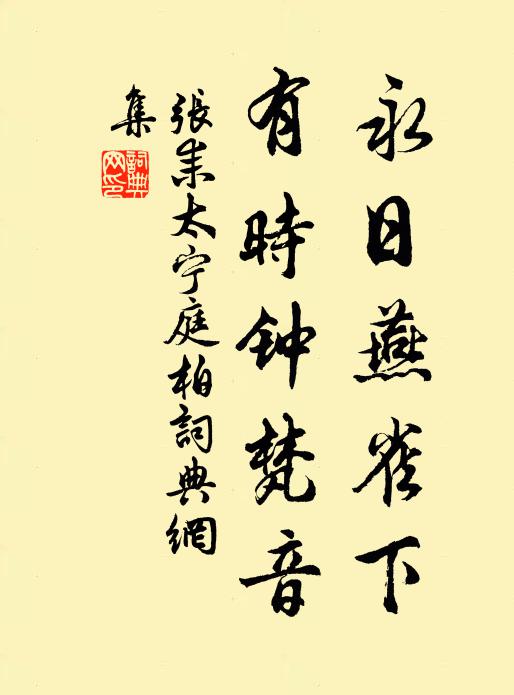 永日燕雀下
有時钟梵音
張耒太宁庭柏詞典網
集
詞典网印